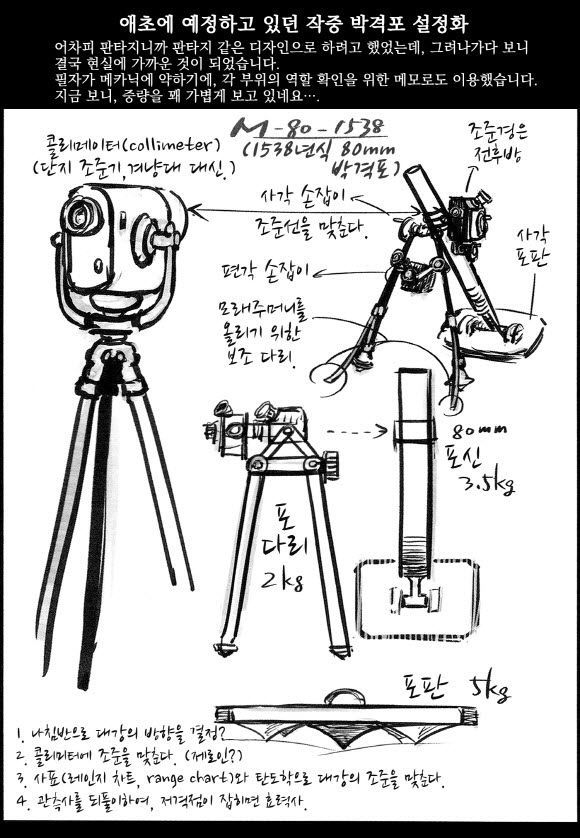 애초에 예정하고 있던 작중 박격포 설정화
어차피 판타지니까 판타지 같은 디자인으로 하려고 했었는데, 그려나가다 보니
결국 현실에 가까운 것이 되었습니다.
필자가 메카닉에 약하기에, 각 부위의 역할 확인을 위한 메모로도 이용했습니다.
지금 보니, 중량을 꽤 가볍게 보고 있네요….
콜리메이터(collimeter)
(단지 조준기,겨냥대 대신.)
M-80-1538
(1538년식 80mm
박격포)
조준경은
전후방
사각 손잡이
조준선을 맞춘다.
사각
포판
편각 손잡이
모래주머니를
올리기 위한
보조 다리.
80mm
포신
3.5kg
포
다리
2kg
포판 5kg
1. 나침반으로 대강의 방향을 결정?
2. 콜리미터에 조준을 맞춘다. (제로인?)
3. 사표(레인지 차트, range chart)와 탄도학으로 대강의 조준을 맞춘다.
4. 관측사를 되풀이하여, 제격점이 잡히면 효력사.